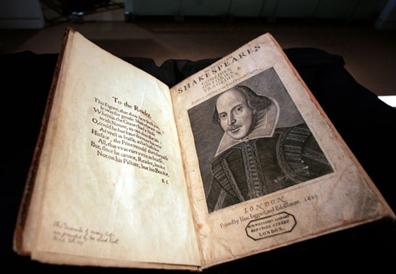 To the Reader.
This Figure, that thou here seest put,
It was for gentle Shakespeare cut;
Wherein the Grauer had a strife
with Nature, to out-doo the life:
O, could he but haue drawne his wit
As well in brasse, as he hath hit
His face; the Print would then surpasse
All, that vvas euer vvrit in brasse.
But, since he cannot, Reader, looke
Not on his Picture, but his Booke.
B. I.
SHAKESPEARES
COMEDIES,
HISTORIES, &
TRAGEDIES.
LONDON
Printed by Isaac Iaggard, and Ed. Blount. 1623
LONDON.